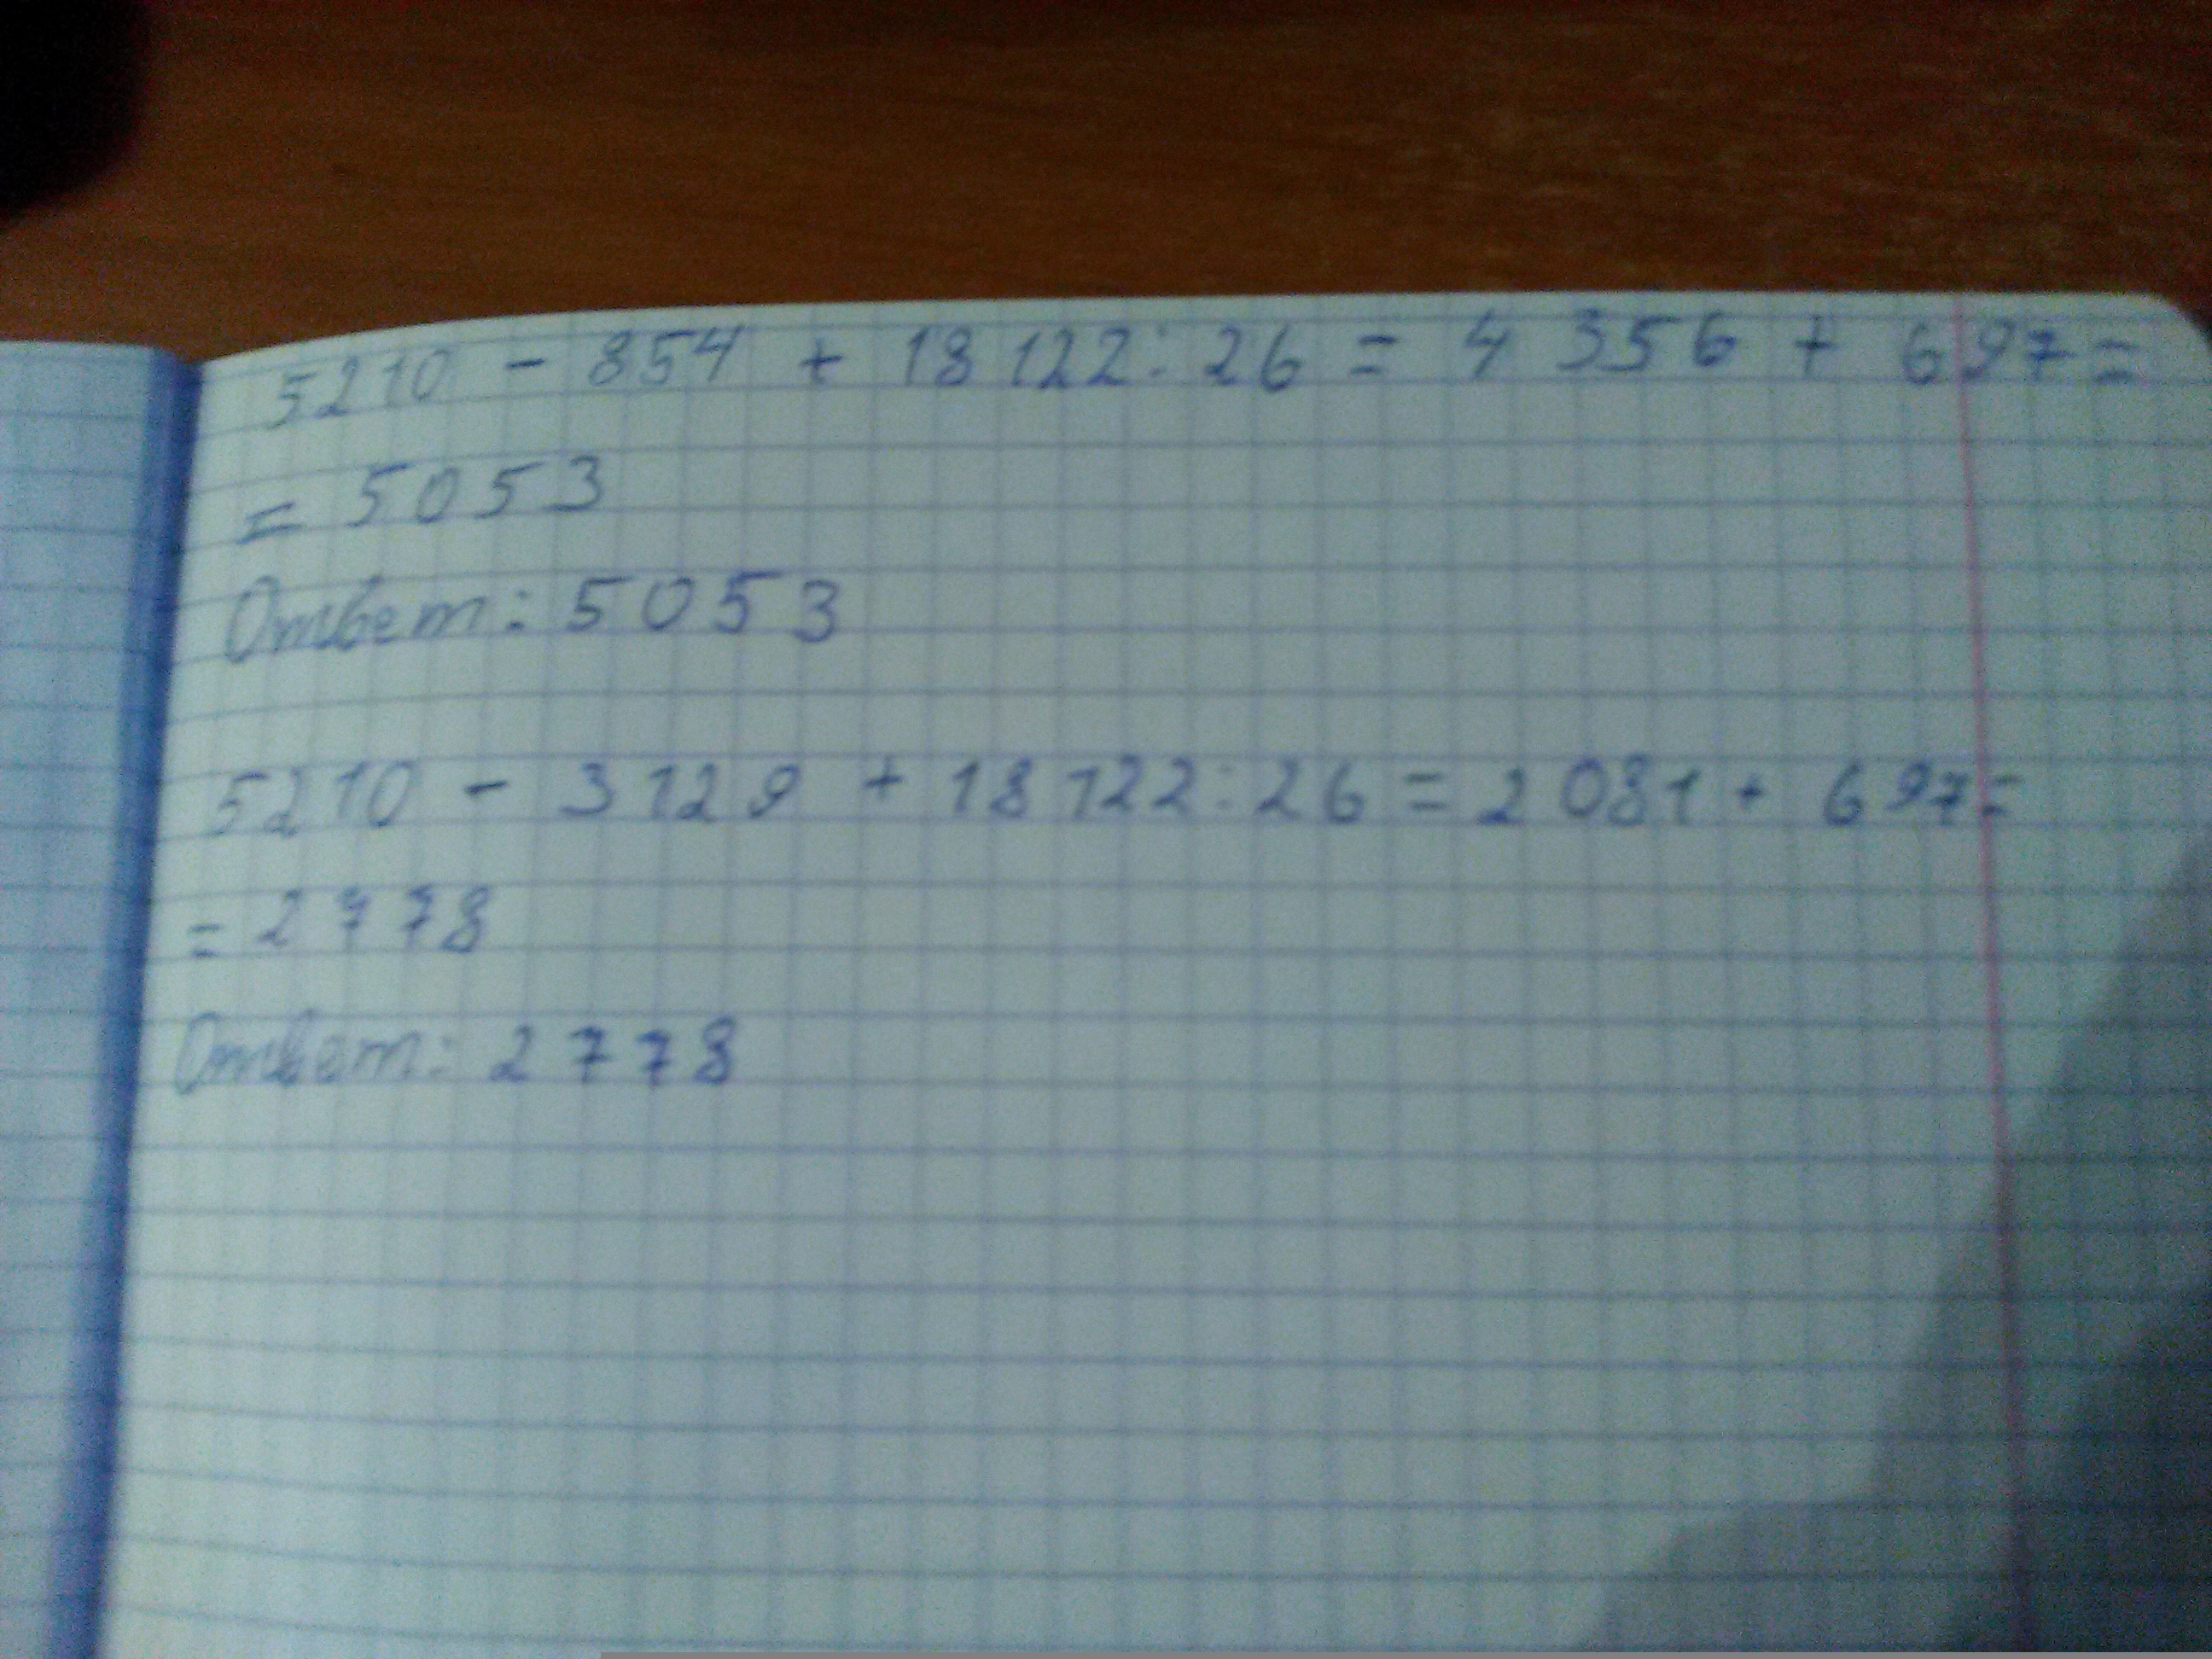 5210 - 854 + 18122 : 26 = 4356 + 697 =
= 5053
Ответ: 5053
5210 - 3129 + 18122 : 26 = 2081 + 697 =
= 2778
Ответ: 2778